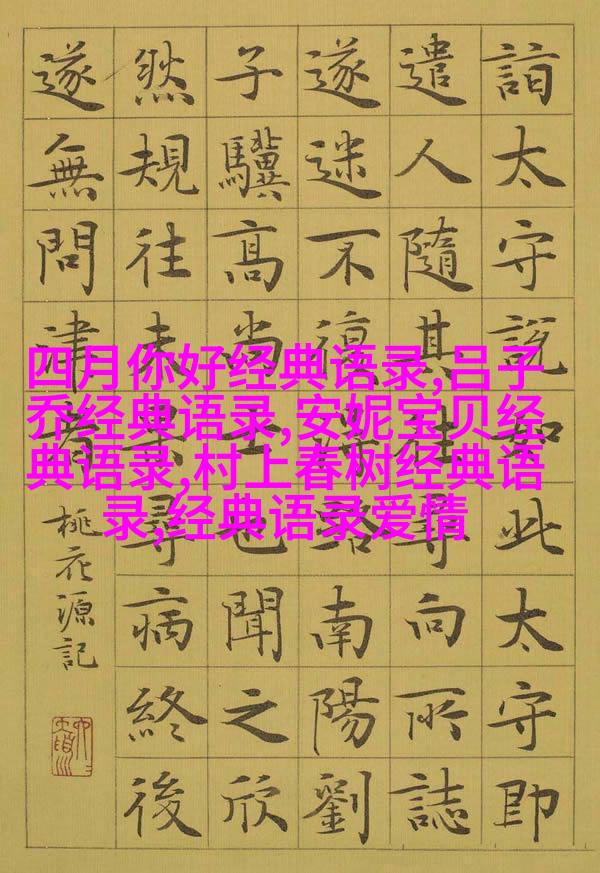 詣太守説如此太守即
遣人隨其往尋向所誌
遂迷不復得路南陽劉
子驥高尚士也聞之欣
然規往未果尋病終後
遂無問津者
桃花源記
四月你好经典语录,吕子
乔经典语录,安妮宝贝经
典语录,村上春树经典语
录,经典语录爱情